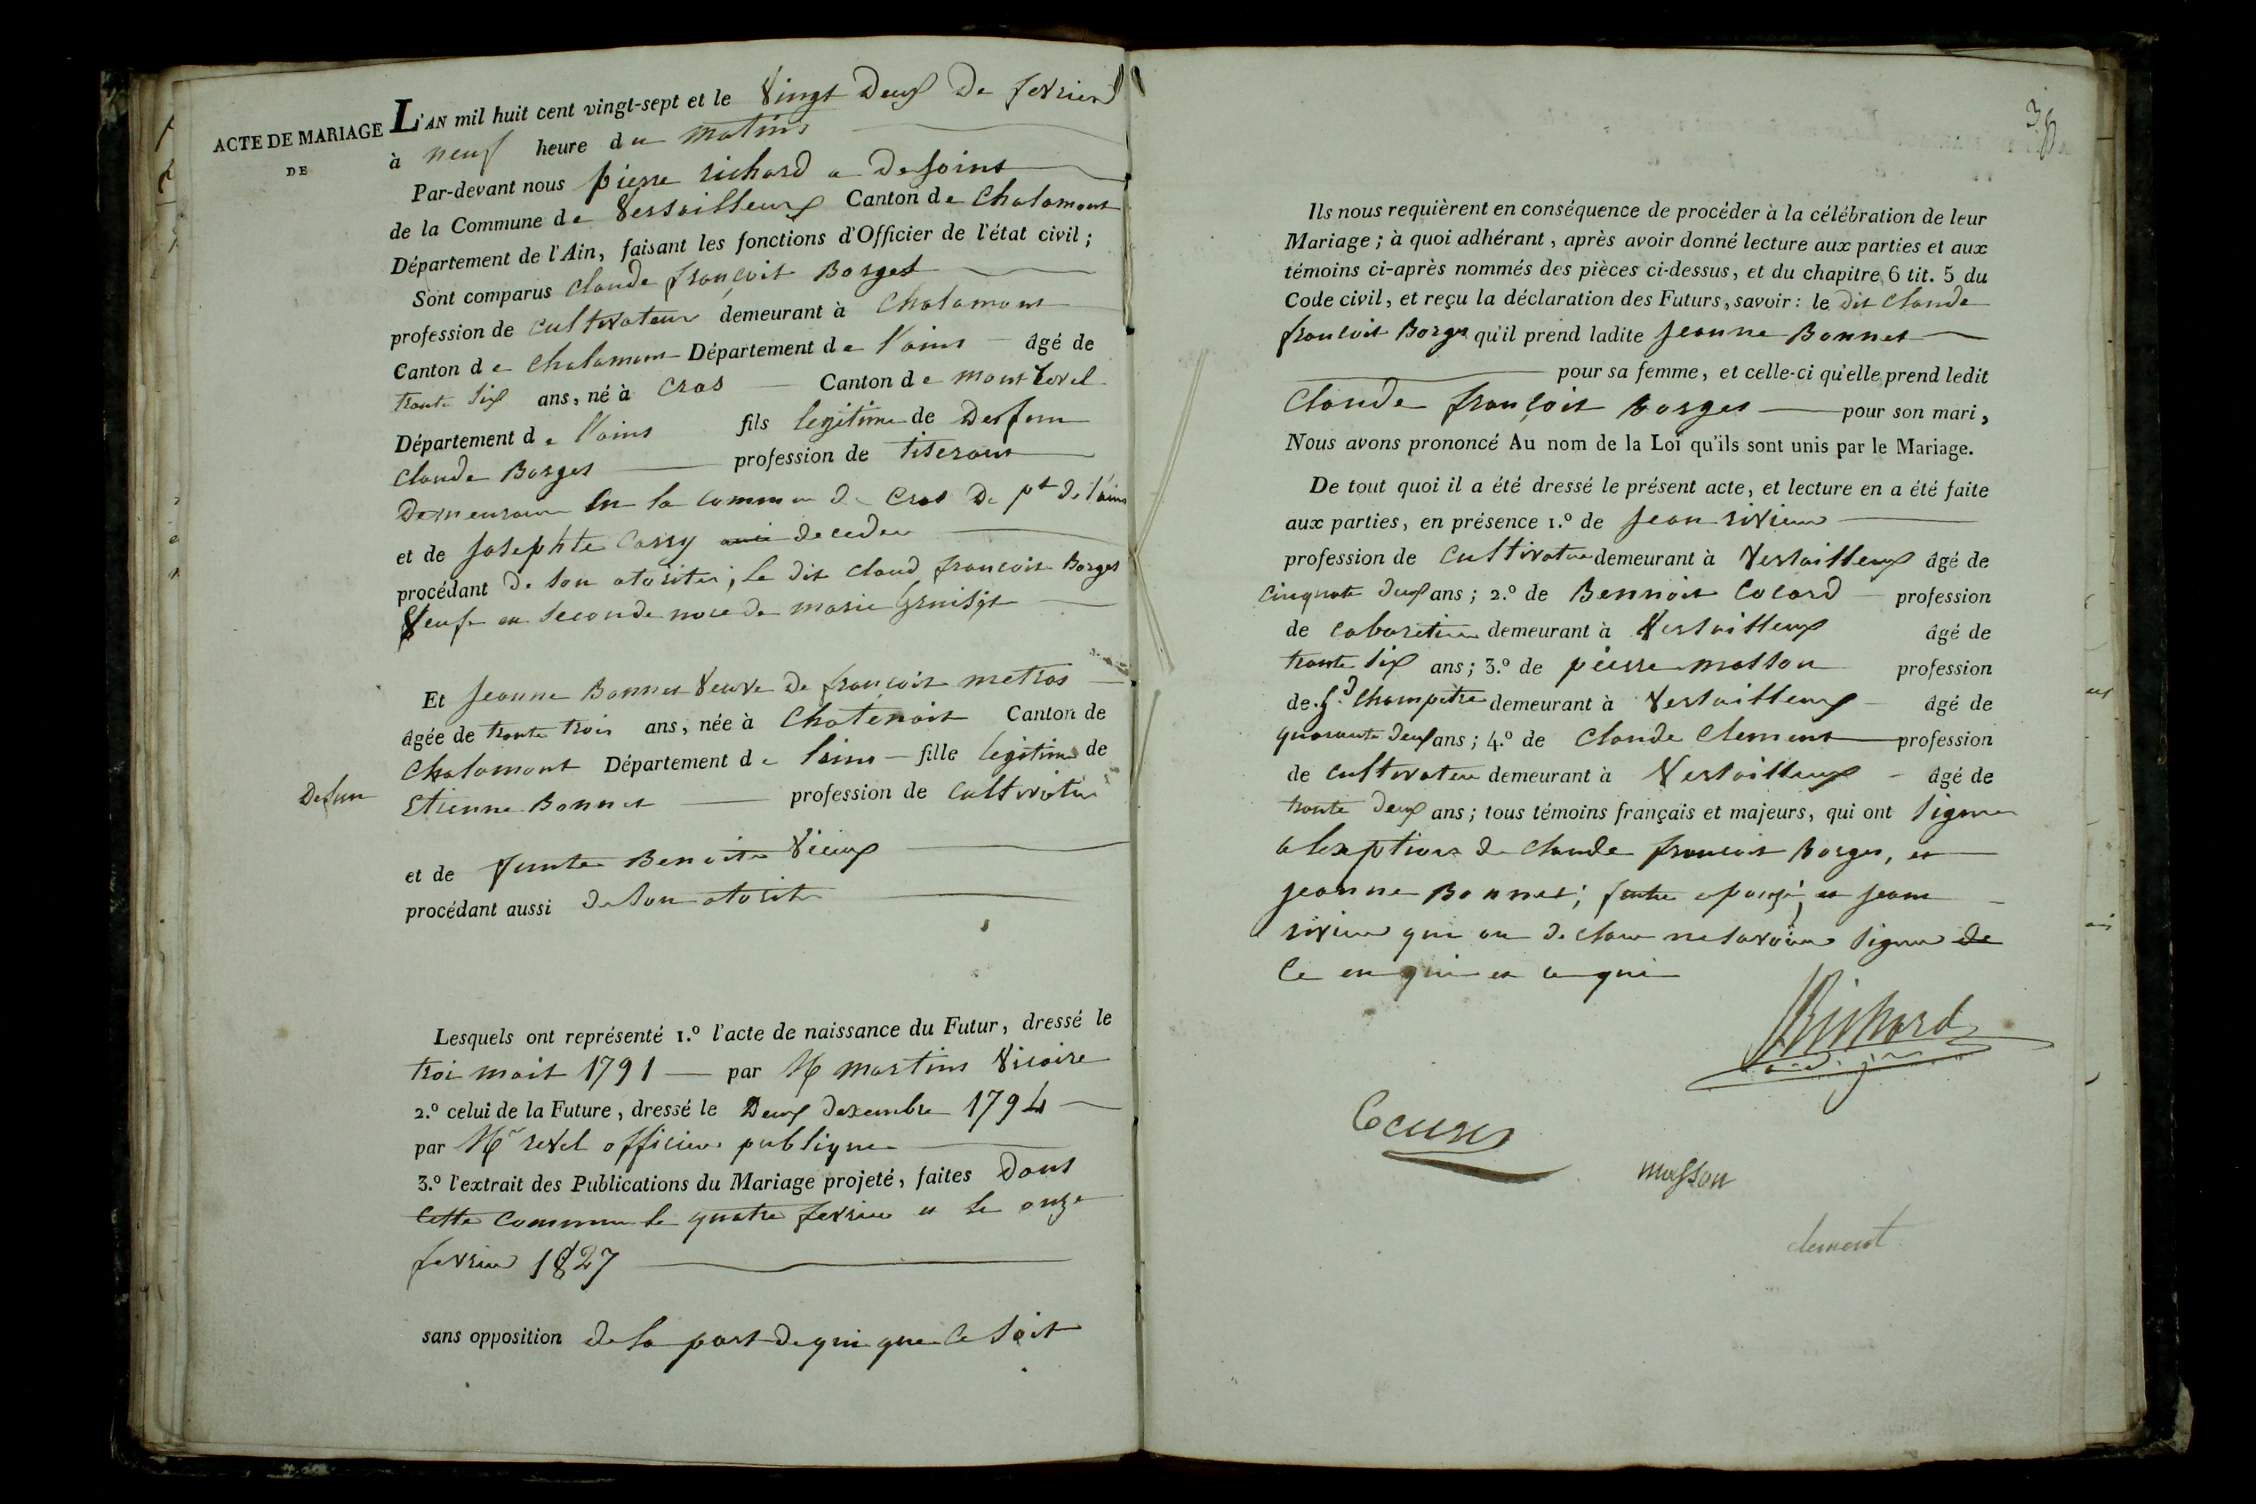 ACTE DE MARIAGE
DE
L'AN mil huit cent vingt-sept et le vingt deux de fevrier
à neuf heure du matins
Par-devant nous pierre richard a Dejoint
de la Commune de Versailleux Canton de Chalamont
Département de l'Ain, faisant les fonctions d'Officier de l'état civil ;
Sont comparus Claude françoit Borget
profession de cultivateur demeurant à Chalamont
Canton de Chalamont Département de l'ains âgé de
trante six ans, né à Cras Canton de montrevel
Département de l'ains fils legitime de Defun
Claude Borges profession de tiserant
Demeurant en la commune de Cras De pt de l'ains
et de Josephte Carry decedee
procédant de son atorite; le dit Claud francois Borges
Veuf en seconde noce de marie
Et Jeanne Bonnet veuve de françoit metras
âgée de trante trois ans, née à Chatenoit Canton de
Chalamont Département de l'ains fille legitime de
Defun Etienne Bonnet profession de cultivateur
et de funte Benoite Vieux
procédant aussi de son atorite
Lesquels ont représenté 1.º l'acte de naissance du Futur, dressé le
troi mait 1791 par M martins Vicaire
2.º celui de la Future, dressé le Deux dexembre 1794
par Mr revel officier publique
3.º l'extrait des Publications du Mariage projeté, faites Dans
cette commune le quatre fevrier et le onze
fevrier 1827
sans opposition de la part de qui que ce soit
38
Ils nous requièrent en conséquence de procéder à la célébration de leur
Mariage ; à quoi adhérant, après avoir donné lecture aux parties et aux
témoins ci-après nommés des pièces ci-dessus, et du chapitre 6 tit. 5 du
Code civil, et reçu la déclaration des Futurs, savoir : le dit Claude
francoit Borges qu'il prend ladite Jeanne Bonnet
pour sa femme, et celle-ci qu'elle prend ledit
Claude françoit Borges pour son mari,
Nous avons prononcé Au nom de la Loi qu'ils sont unis par le Mariage.
De tout quoi il a été dressé le présent acte, et lecture en a été faite
aux parties, en présence 1.º de Jean rivier
profession de cultivateur demeurant à Versailleux âgé de
cinquate deux ans ; 2.º de Bennoit Cocard profession
de cabaretier demeurant à Versailleux âgé de
trante six ans ; 3.º de pierre masson profession
de gd Champetre demeurant à Versailleux âgé de
quarante deux ans ; 4.º de Claude Clement profession
de cultivateur demeurant à Versailleux âgé de
trante deux ans ; tous témoins français et majeurs, qui ont signer
a lexeption de Claude francoit Borges, et
Jeanne Bonnet; et Jean
rivier qui on declare ne savoir signer de
Ce en qui et requi
Richard
adjoint
masson
clement